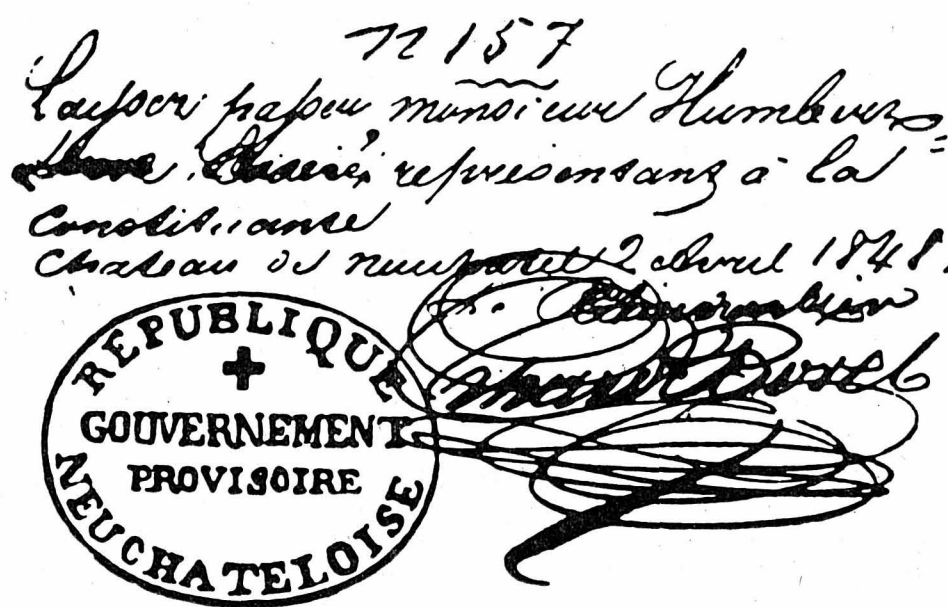 n 157
Laisser passer monsieur Humbert
représentant à la
Constituante
Chateau de neuchatel 2 Avril 1848.
RÉPUBLIQUE
GOUVERNEMENT
PROVISOIRE
NEUCHATELOISE